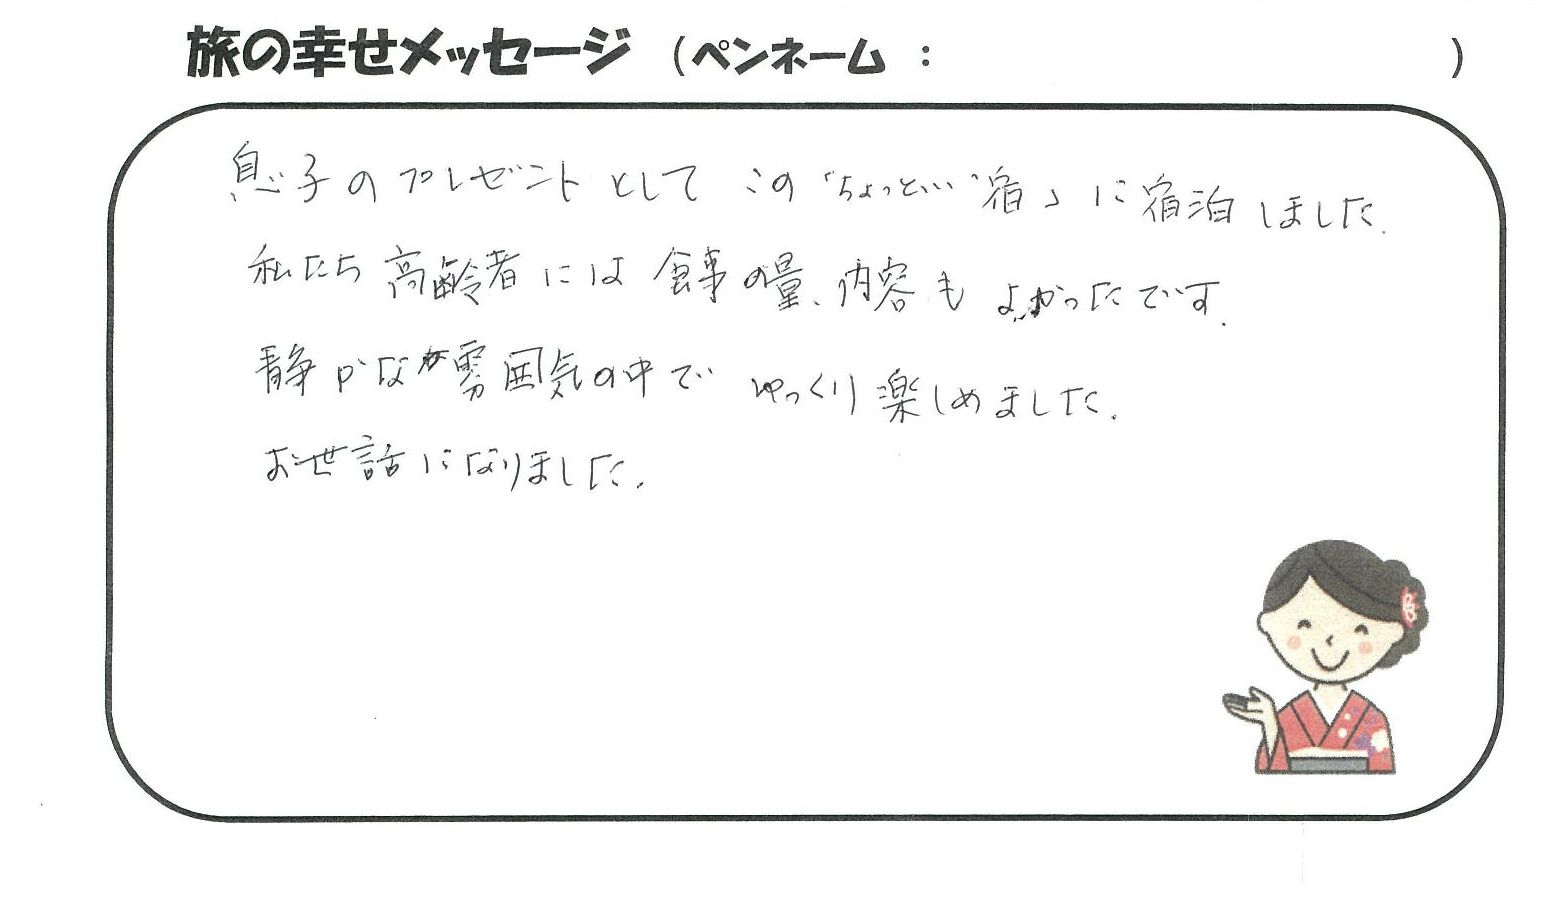 旅の幸せメッセージ (ペンネーム : )
息子のプレゼントとして この「ちょっといい宿」に宿泊しました.
私たち高齢者には食事の量、内容も よかったです.
静かな雰囲気の中で ゆっくり楽しめました.
お世話になりました.